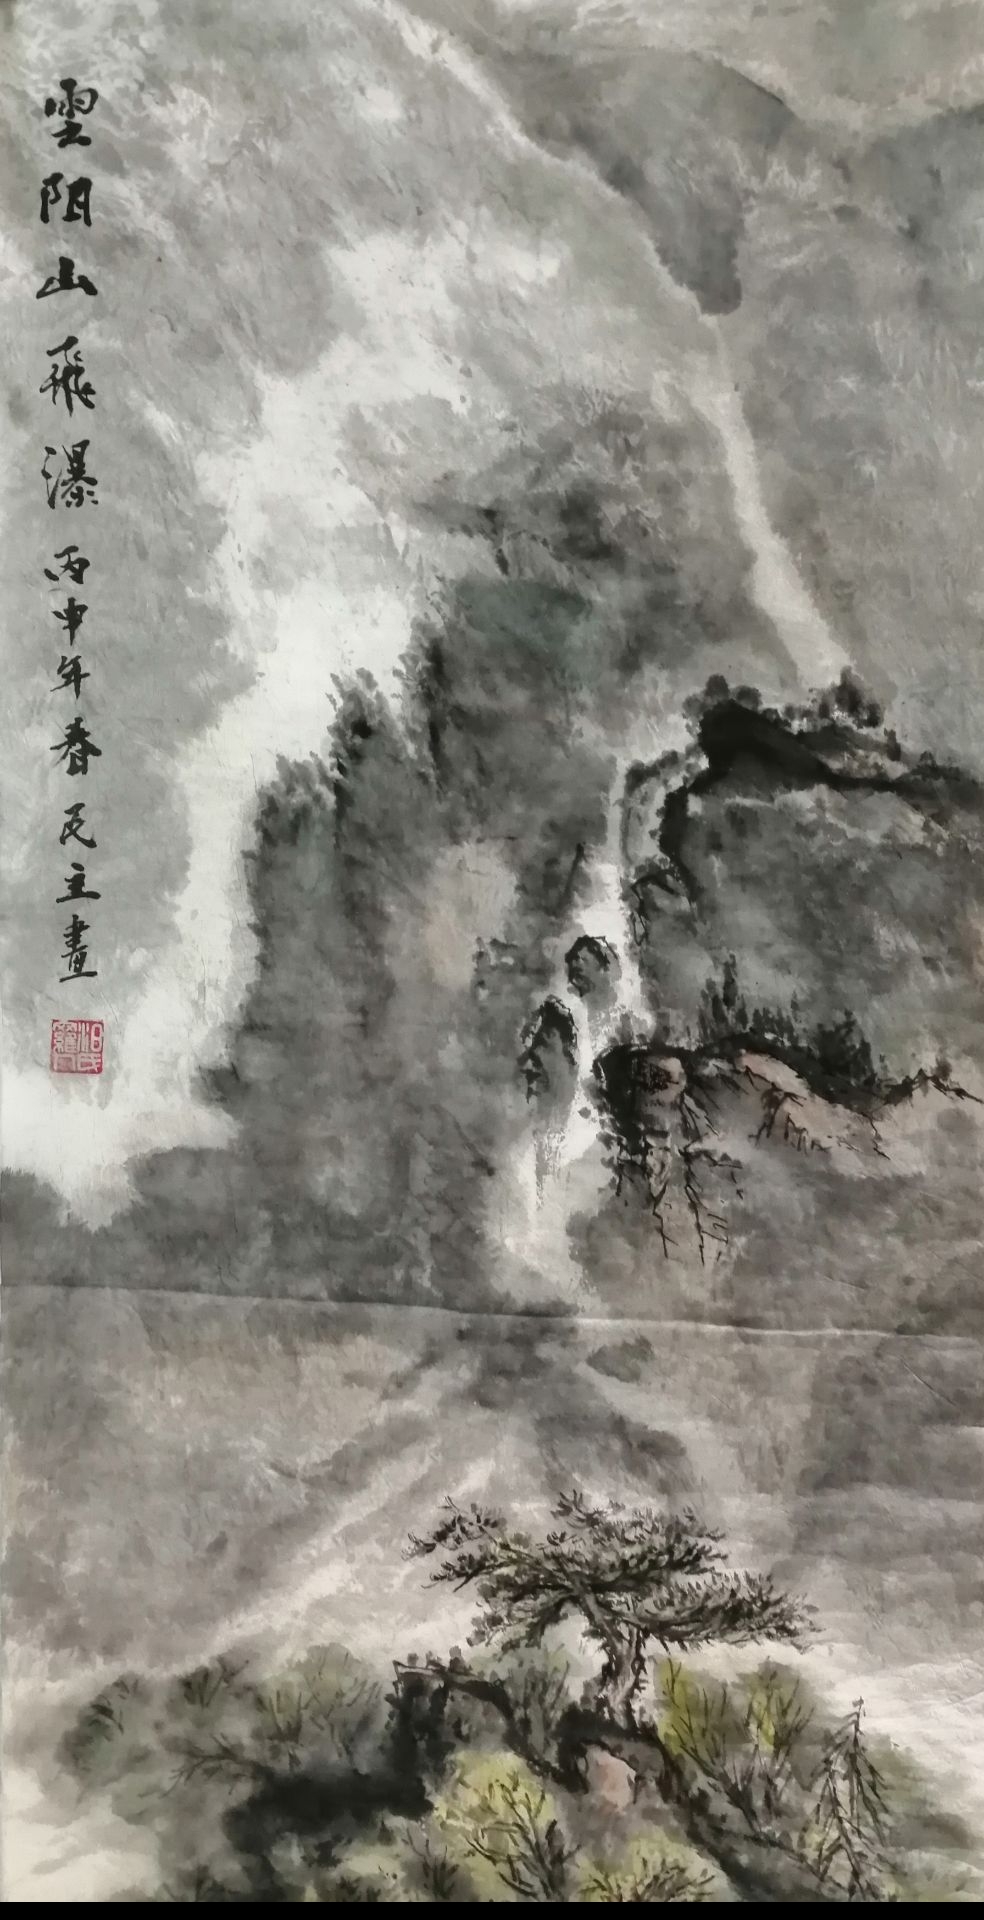 雲阻山飛瀑 丙申年春 民主畫